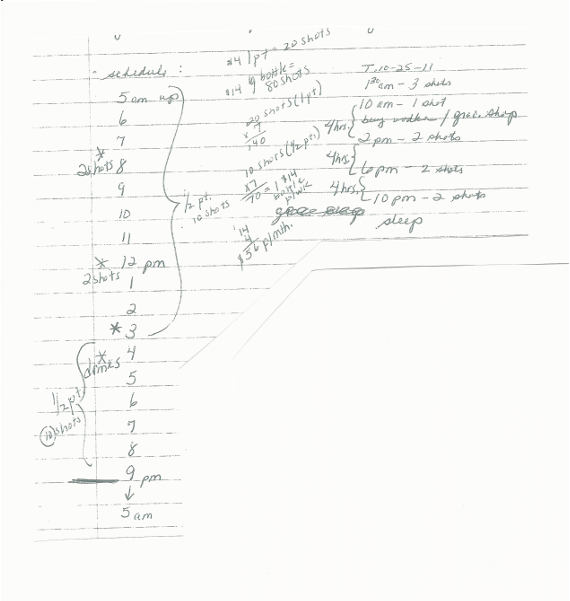 schedule :
5 am up
6
7
*
2 shots 8
9
10
11
*
12 pm
2 shots
1
2
* 3
* 4
drinks
5
6
7
8
9 pm
↓
5 am
1/2 pt.
10 shots
1/2 pt.
10 shots
$4 1 pt = 20 shots
$14 g bottle =
80 shots
20 shots (1 pt)
x 7
140
10 shots (1/2 pt)
x7
70 = 1 $14
bottle
p/wk
14
4
$56 p/mth.
T. 10-25-11
1:30 am - 3 shots
10 am - 1 shot
4 hrs.
buy vodka / groc. shop
2 pm - 2 shots
4 hrs.
6 pm - 2 shots
4 hrs.
10 pm - 2 shots
sleep